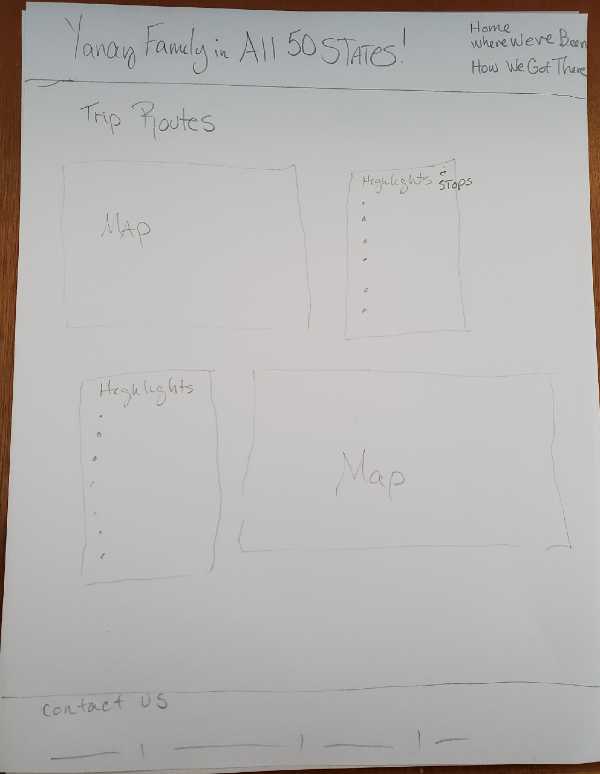 Yanaq Family in All 50 STATES!
Home
where We've Been
How We Got There
Trip Routes
MAP
Highlights & STOPS
Highlights
Map
Contact US